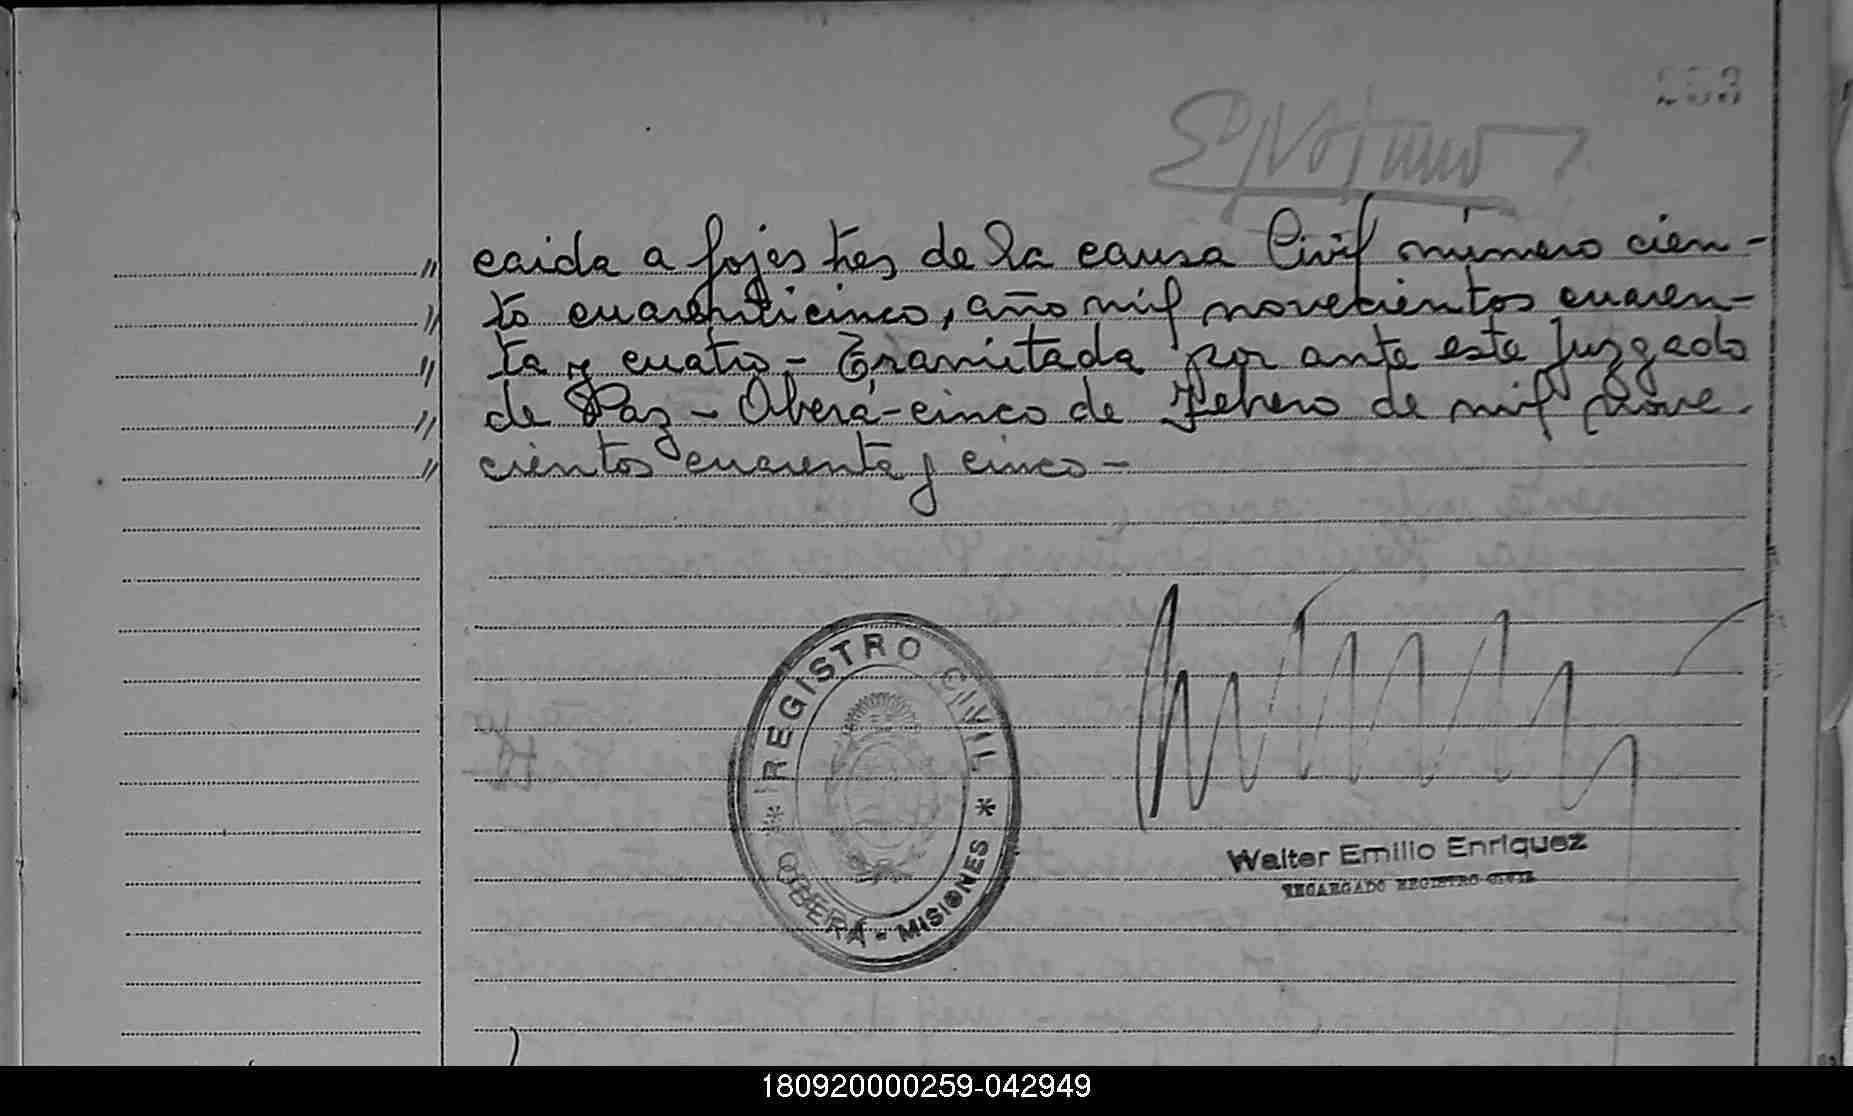 caida a fojas tres de la causa Civil número cien-
to cuarenticinco, año mil novecientos cuaren-
ta y cuatro - Tramitada por ante este Juzgado
de Paz - Oberá - cinco de Febrero de mil nove
cientos cuarenta y cinco -
REGISTRO CIVIL
* OBERÁ - MISIONES *
Walter Emilio Enriquez
ENCARGADO REGISTRO CIVIL
180920000259-042949